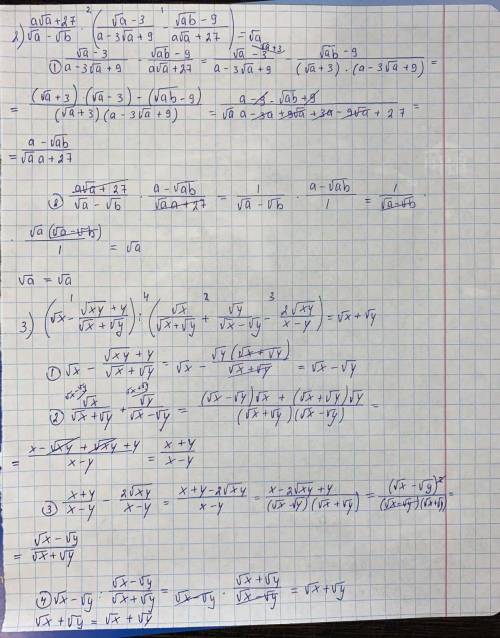 2) (a√a + 27)/(√a - √b) ·² ((√a - 3)/(a - 3√a + 9) -¹ (√ab - 9)/(a√a + 27)) = √a
① (√a - 3)/(a - 3√a + 9) - (√ab - 9)/(a√a + 27) = (√a - 3)^(√a + 3)/(a - 3√a + 9) - (√ab - 9)/((√a + 3) · (a - 3√a + 9)) =
= ((√a + 3) · (√a - 3) - (√ab - 9))/((√a + 3)(a - 3√a + 9)) = (a - 9 - √ab + 9)/(√a a - 3a + 9√a + 3a - 9√a + 27) =
= (a - √ab)/(√a a + 27)
② (a√a + 27)/(√a - √b) · (a - √ab)/(√a a + 27) = 1/(√a - √b) · (a - √ab)/1 = 1/(√a - √b) ·
· √a(√a - √b)/1 = √a
√a = √a
3) (√x -¹ (√xy + y)/(√x + √y)) :⁴ (√x/(√x + √y) +² √y/(√x - √y) -³ 2√xy/(x - y)) = √x + √y
① √x - (√xy + y)/(√x + √y) = √x - √y(√x + √y)/(√x + √y) = √x - √y
② √x^(√x - √y)/(√x + √y) + √y^(√x + √y)/(√x - √y) = ((√x - √y)√x + (√x + √y)√y)/((√x + √y)(√x - √y)) =
= (x - √xy + √xy + y)/(x - y) = (x + y)/(x - y)
③ (x + y)/(x - y) - 2√xy/(x - y) = (x + y - 2√xy)/(x - y) = (x - 2√xy + y)/((√x - √y)(√x + √y)) = (√x - √y)²/((√x - √y)(√x + √y)) =
= (√x - √y)/(√x + √y)
④ √x - √y : (√x - √y)/(√x + √y) = √x - √y · (√x + √y)/(√x - √y) = √x + √y
√x + √y = √x + √y